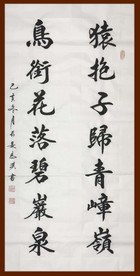 猿抱子歸青嶂嶺
鳥銜花落碧巖泉
己亥冬月
書